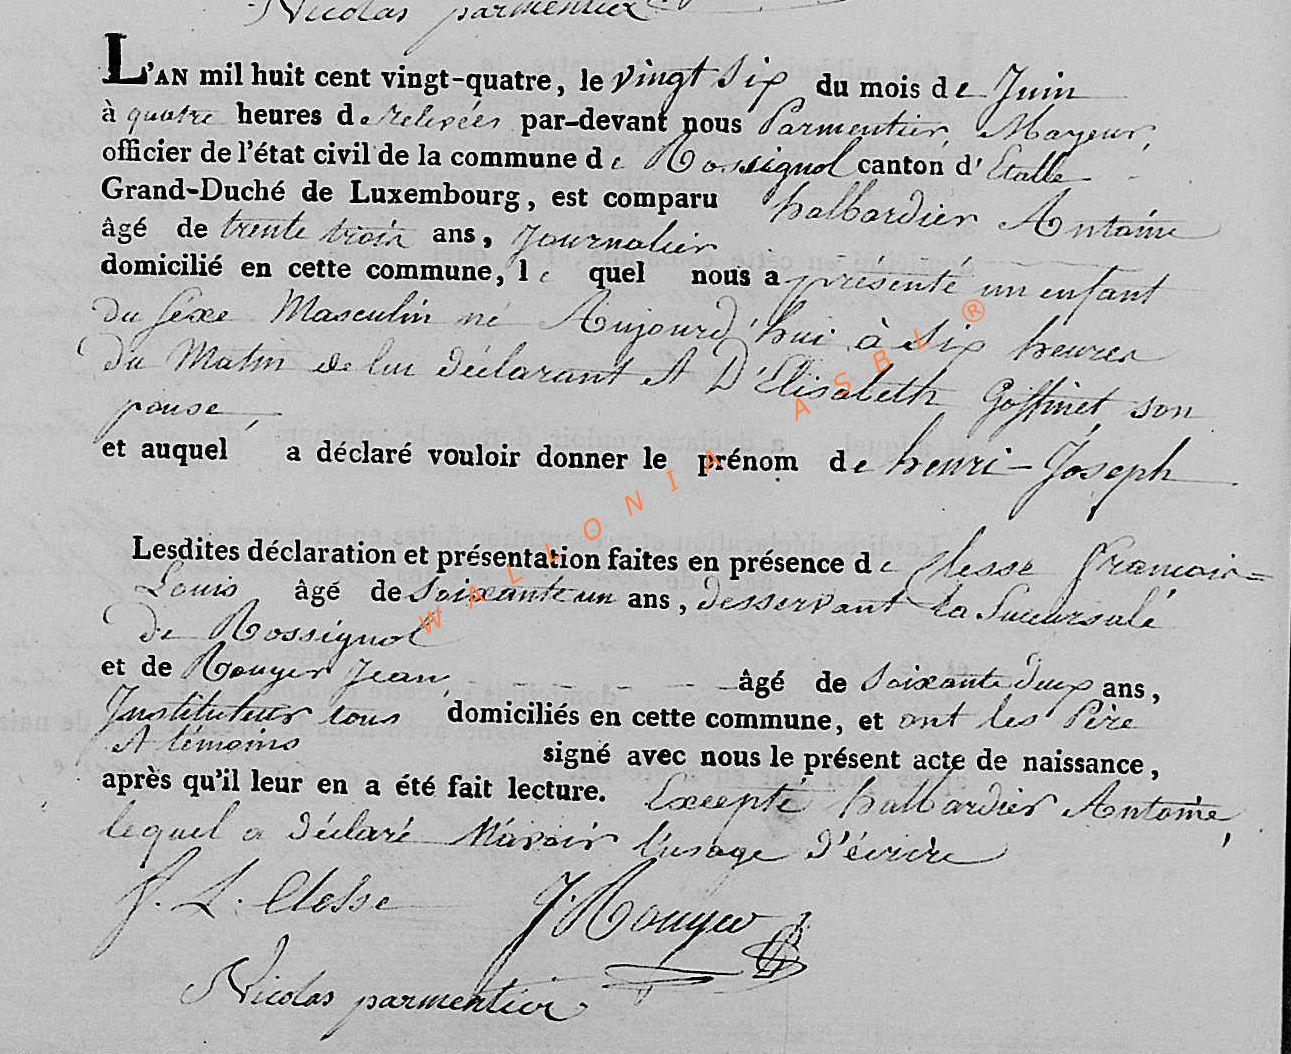 Nicolas parmentier
L'AN mil huit cent vingt-quatre, le vingt Six du mois de Juin
à quatre heures de relevées par-devant nous Parmentier, Mayeur,
officier de l'état civil de la commune de Rossignol canton d'Etalle
Grand-Duché de Luxembourg, est comparu halbardier Antoine
âgé de trente trois ans, Journalier
domicilié en cette commune, le quel nous a présenté un enfant
du Séxe Masculin né Aujourd'hui à Six heures
du Matin de lui déclarant et D'Elisabeth Goffinet son
pouse
et auquel a déclaré vouloir donner le prénom de henri-Joseph
Lesdites déclaration et présentation faites en présence de Clesse Francois=
Louis âgé de Soixante un ans, desservant la Succursale
de Rossignol
et de Rouyer Jean, âgé de Soixante Deux ans,
Instituteur tous domiciliés en cette commune, et ont les Père
et témoins signé avec nous le présent acte de naissance,
après qu'il leur en a été fait lecture. Excepté halbardier Antoine,
lequel a déclaré N'avoir l'usage d'écrire
f. L. Clesse J. Rouyer
Nicolas parmentier
WALLONIA ASBL ®